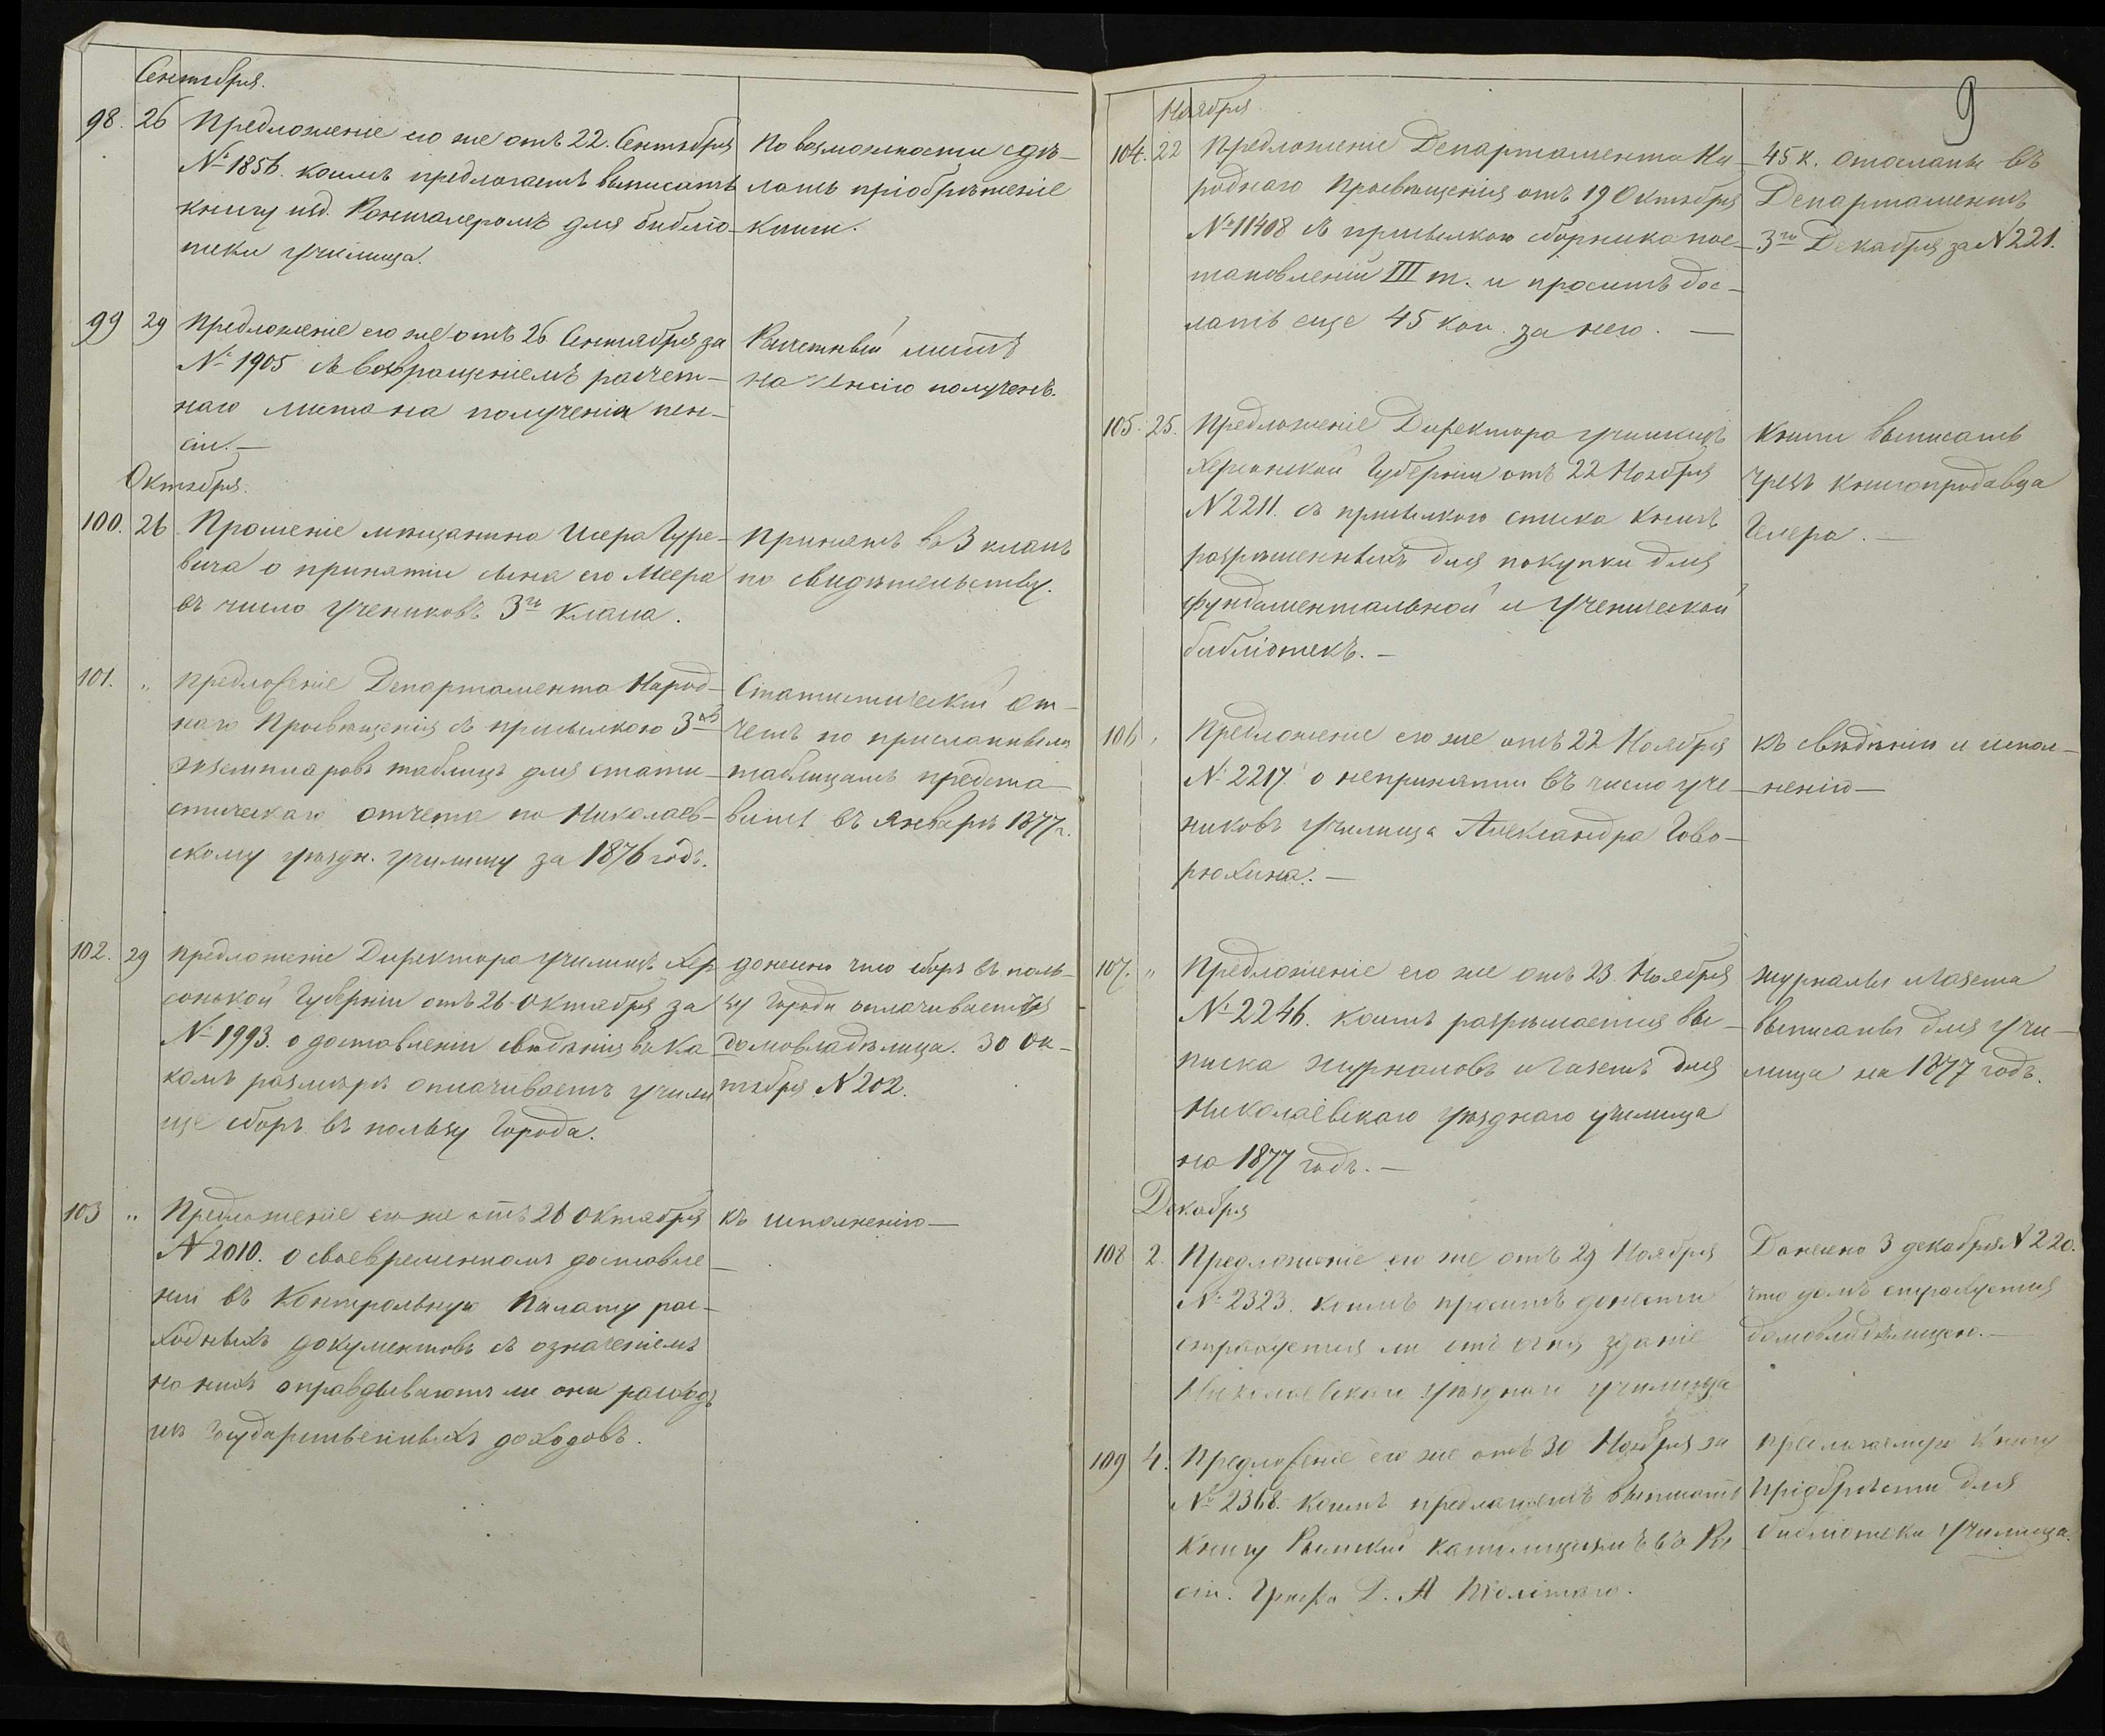 Сентября.
98. 26 Предложеніе его же отъ 22. Сентября
№ 1856. коимъ предлогаетъ выписать
книгу изд. Ранталеромъ для библіо-
теки училища.
По возможности сдѣ-
лать пріобрѣтеніе
книги.
99 29 Предложеніе его же отъ 26 Сентября за
№ 1905 съ возвращеніемъ расчет-
наго листа на полученіи пен-
сіи. —
Расчетный листъ
на пенсію полученъ.
Октября.
100. 26 Прошеніе мѣщанина Исера Гуре-
вича о принятіи сына его Меера
въ число учениковъ 3го класа.
Принятъ въ 3 класъ
по свидѣтельству.
101. „ Предложеніе Департамента Народ-
наго Просвѣщенія съ присылкою 3хъ
экземпляровъ таблицъ для стати-
стическаго отчета по Николаев-
скому уѣздн. училищу за 1876 годъ.
Статистическій от-
четъ по присланнымъ
таблицамъ предста-
вить въ Январѣ 1877 г.
102. 29 Предложеніе Директора училищъ Хер
сонской Губерніи отъ 26 Октября за
№ 1993. о доставленіи свѣдѣнія въ ка
комъ размѣрѣ оплачиваетъ учили
ще сборъ въ пользу Города.
донесено что сборъ въ поль-
зу города оплачивается
домовладѣлица. 30 Ок-
тября № 202.
103 „ Предложеніе его же отъ 26 Октября
№ 2010. о своевременномъ доставле-
ніи въ Контрольную Палату рас-
ходныхъ документовъ съ означеніемъ
на нихъ оправдываютъ ли они расходъ
изъ государственныхъ доходовъ.
къ исполненію —
9
Ноября.
104. 22 Предложеніе Департамента На-
роднаго Просвѣщенія отъ 19 Октября
№ 11408 съ присылкою сборника пос-
тановленій III т. и проситъ дос-
лать еще 45 коп. за него. —
45 к. отосланы въ
Департаментъ
3го Декабря за № 221.
105. 25. Предложеніе Директора училищъ
Херсонской Губерніи отъ 22 Ноября
№ 2211. съ присылкою списка книгъ
разрѣшенныхъ для покупки для
фундаментальной и ученической
библіотекъ. —
Книги выписать
чрезъ книгопродавца
Гелера. —
106 „ Предложеніе его же отъ 22 Ноября
№ 2217. о непринятіи въ число уче-
никовъ училища Александра Гово-
рюхина. —
къ свѣдѣнію и испол-
ненію —
107. „ Предложеніе его же отъ 23 Ноября
№ 2246. коимъ разрѣшается вы-
писка журналовъ и газетъ для
Николаевскаго уѣзднаго училища
на 1877 годъ. —
Журналы и газета
выписаны для учи-
лища на 1877 годъ.
Декабря
108 2. Предложеніе его же отъ 29 Ноября
№ 2323. коимъ проситъ донести
страхуется ли отъ огня зданіе
Николаевскаго уѣзднаго училища
Донесено 3 декабря № 220.
что домъ страхуется
домовладѣлицею. —
109 4. Предложеніе его же отъ 30 Ноября за
№ 2368. коимъ предлагаетъ выписать
книгу Римскій католицизмъ въ Рос
сіи. Графа Д. А Толстаго.
Прелагаемую книгу
пріобрѣсти для
библіотеки училища.